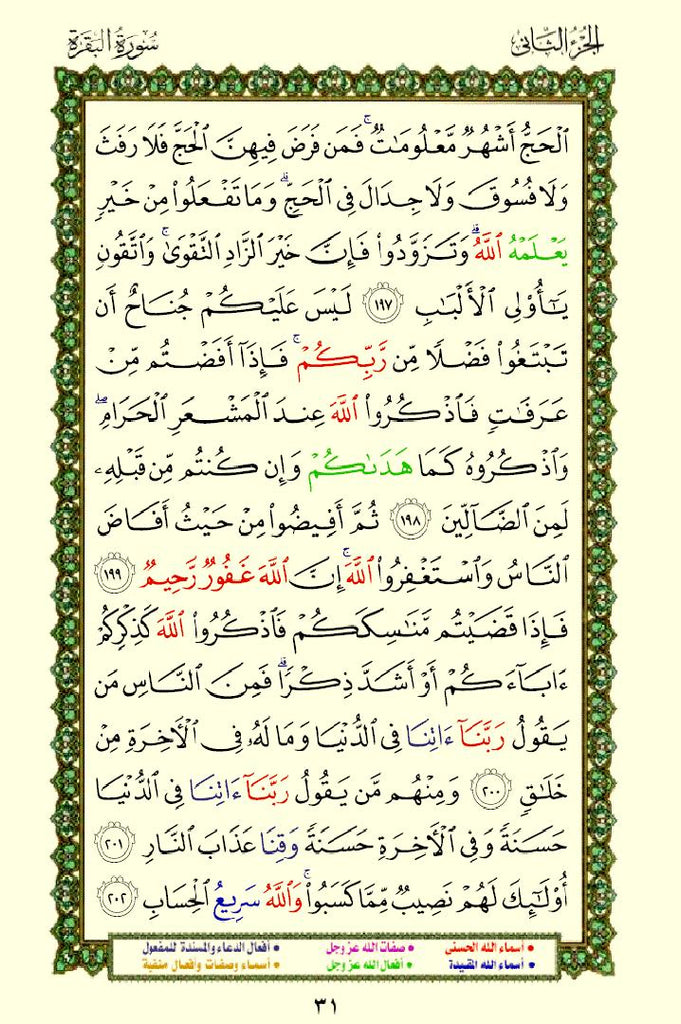 الجزء الثاني
سورة البقرة
ٱلْحَجُّ أَشْهُرٌ مَّعْلُومَٰتٌ ۚ فَمَن فَرَضَ فِيهِنَّ ٱلْحَجَّ فَلَا رَفَثَ
وَلَا فُسُوقَ وَلَا جِدَالَ فِى ٱلْحَجِّ ۗ وَمَا تَفْعَلُوا۟ مِنْ خَيْرٍ
يَعْلَمْهُ ٱللَّهُ ۗ وَتَزَوَّدُوا۟ فَإِنَّ خَيْرَ ٱلزَّادِ ٱلتَّقْوَىٰ ۚ وَٱتَّقُونِ
يَٰٓأُو۟لِى ٱلْأَلْبَٰبِ ١٩٧ لَيْسَ عَلَيْكُمْ جُنَاحٌ أَن
تَبْتَغُوا۟ فَضْلًا مِّن رَّبِّكُمْ ۚ فَإِذَآ أَفَضْتُم مِّنْ
عَرَفَٰتٍ فَٱذْكُرُوا۟ ٱللَّهَ عِندَ ٱلْمَشْعَرِ ٱلْحَرَامِ ۖ
وَٱذْكُرُوهُ كَمَا هَدَىٰكُمْ وَإِن كُنتُم مِّن قَبْلِهِۦ
لَمِنَ ٱلضَّآلِّينَ ١٩٨ ثُمَّ أَفِيضُوا۟ مِنْ حَيْثُ أَفَاضَ
ٱلنَّاسُ وَٱسْتَغْفِرُوا۟ ٱللَّهَ ۚ إِنَّ ٱللَّهَ غَفُورٌ رَّحِيمٌ ١٩٩
فَإِذَا قَضَيْتُم مَّنَٰسِكَكُمْ فَٱذْكُرُوا۟ ٱللَّهَ كَذِكْرِكُمْ
ءَابَآءَكُمْ أَوْ أَشَدَّ ذِكْرًا ۗ فَمِنَ ٱلنَّاسِ مَن
يَقُولُ رَبَّنَآ ءَاتِنَا فِى ٱلدُّنْيَا وَمَا لَهُۥ فِى ٱلْأَخِرَةِ مِنْ
خَلَٰقٍ ٢٠٠ وَمِنْهُم مَّن يَقُولُ رَبَّنَآ ءَاتِنَا فِى ٱلدُّنْيَا
حَسَنَةً وَفِى ٱلْأَخِرَةِ حَسَنَةً وَقِنَا عَذَابَ ٱلنَّارِ ٢٠١
أُو۟لَٰٓئِكَ لَهُمْ نَصِيبٌ مِّمَّا كَسَبُوا۟ ۚ وَٱللَّهُ سَرِيعُ ٱلْحِسَابِ ٢٠٢
• أسماء الله الحسنى • صفات الله عز وجل • أفعال الدعاء والمسندة للمفعول
• أسماء الله المقيدة • أفعال الله عز وجل • أسماء وصفات وأفعال منفية
٣١